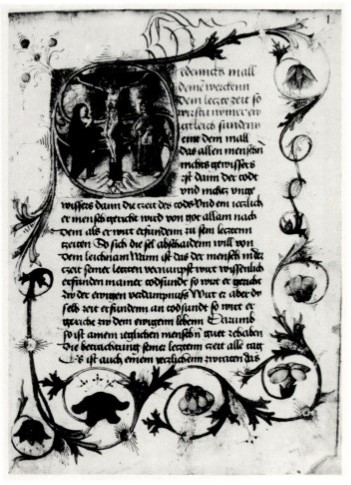 1
mall
deine wercken
dein letzte zeit so
sunden
eine dem mall
das allen menschen
nichts gewissers
ist dann der todt
vnd nichts vnge
wissers dann die zeit des tods Vnd ein ieclich
er mensch gericht wird von got allam nach
dem als er wirt erfunden zu sein letzten
zeiten So sich die sel abschaiden will von
dem leichnam Wann ist das der mensch in der
zeit seiner letzten vernunfft wirt wissenlich
erfunden in ainer todsunde so wirt er gericht
zw der ewigen verdampnuss Wirt er aber do
selb zeit erfunden an todsunde so wirt er
gericht zw dem ewigem lebenn Darumb
so ist ainem ieglichen menschen guet zehaben
die betrachtung seiner letzten zeit alle tag
Es ist auch einem das